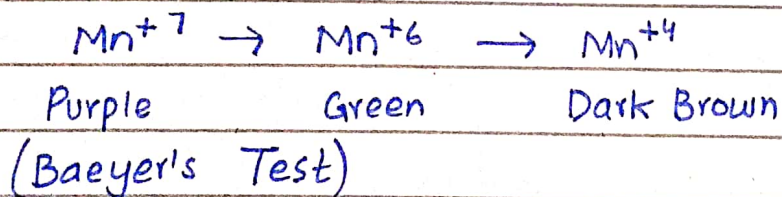 Mn⁺⁷ → Mn⁺⁶ → Mn⁺⁴
Purple Green Dark Brown
(Baeyer's Test)